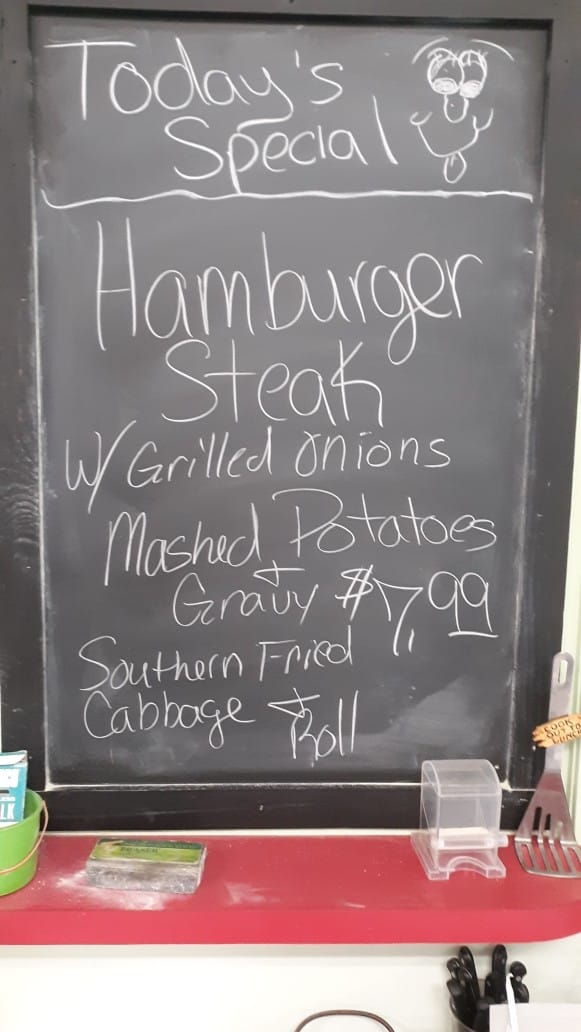 Today's
Special
Hamburger
Steak
W/ Grilled Onions
Mashed Potatoes
+
Gravy $7.99
Southern Fried
Cabbage +
Roll
COOK
OUT TO
LUNCH
LK